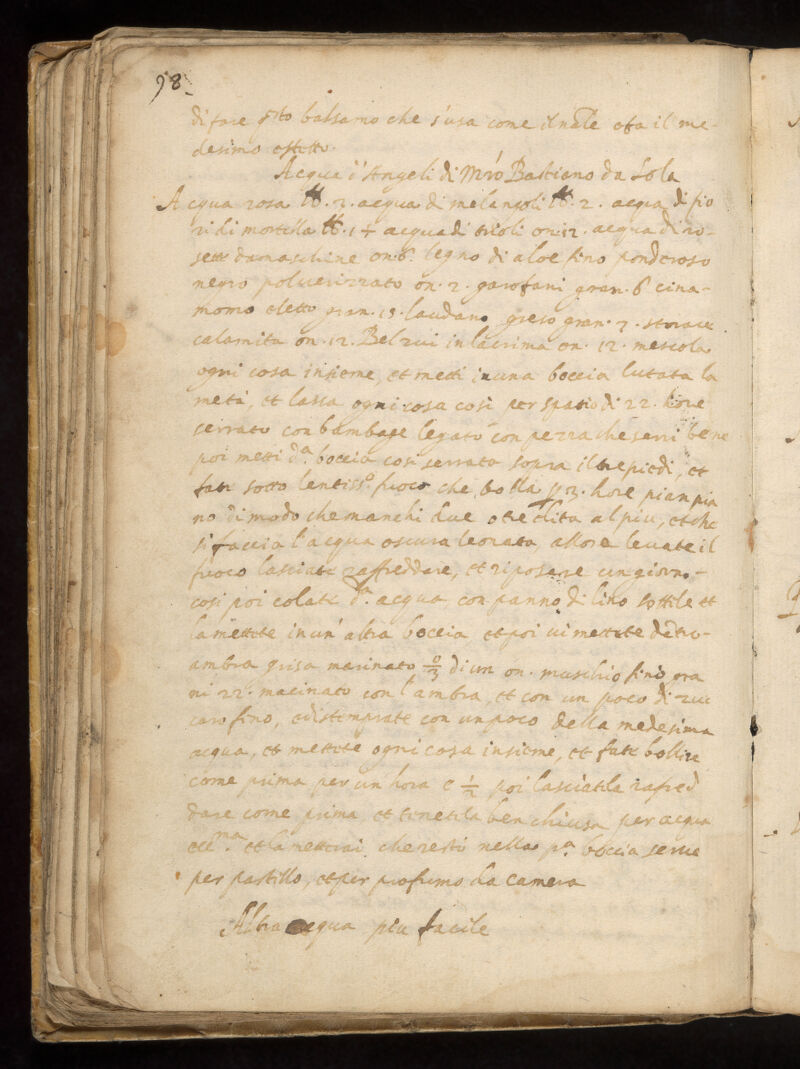 98.
di fare q.sto balsamo che s'usa come il n.ale et fa il me-
desimo effetto.
Acqua d'Angeli di M.ro Bastiano da Sola
Acqua rosa lb. 3. acqua di melangoli lb. 2. acqua di fio
ri di mortella lb. 1 acqua di trioli on. 12. acqua di ro-
sette damaschine on. 6. legno di aloe fino ponderoso
negro poluerizzato on. 2. garofani gran. 6 cina-
momo eletto gran. 15. laudano greso gran. 7. storace
calamita on. 12. Belzui in lacrima on. 12. mescola
ogni cosa insieme, et metti in una boccia lutata la
metà, et lassa ogni cosa così per spatio di 22. hore
serrato con bambage legato con pezza che serri bene
poi metti d.a boccia così serrata sopra il trepiedi, et
fate sotto lentiss.o fuoco che bolla p 3. hore pian pia
no di modo che manchi due o tre dita al piu, et che
si faccia l'acqua oscura leonata, allora leuate il
fuoco lasciate raffreddare, et riposare un giorno-
così poi colate d.a acqua con panno di lino sottile et
la mettete in un'altra boccia et poi ui mettete dentro-
ambra grisa macinato di un on. muschio fino gra
ni 22. macinato con l'ambra, et con un poco di zuc
caro fino, et distemprate con un poco della medesima
acqua, et mettete ogni cosa insieme, et fate bollire
come prima per un hora e 1/2 poi lasciatila rafred
dare come prima et tenetila ben chiusa per acqua
ecc.ma et la che resti nella p.a boccia serue
per pastillo, et per profumo da camera
Altra acqua piu facile